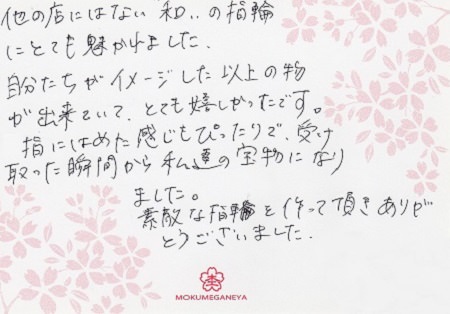 他の店にはない“和”の指輪
にとても魅かれました。
自分たちがイメージした以上の物
が出来ていて、とても嬉しかったです。
指にはめた感じもぴったりで、受け
取った瞬間から私達の宝物になり
ました。
素敵な指輪を作って頂きありが
とうございました。
MOKUMEGANEYA